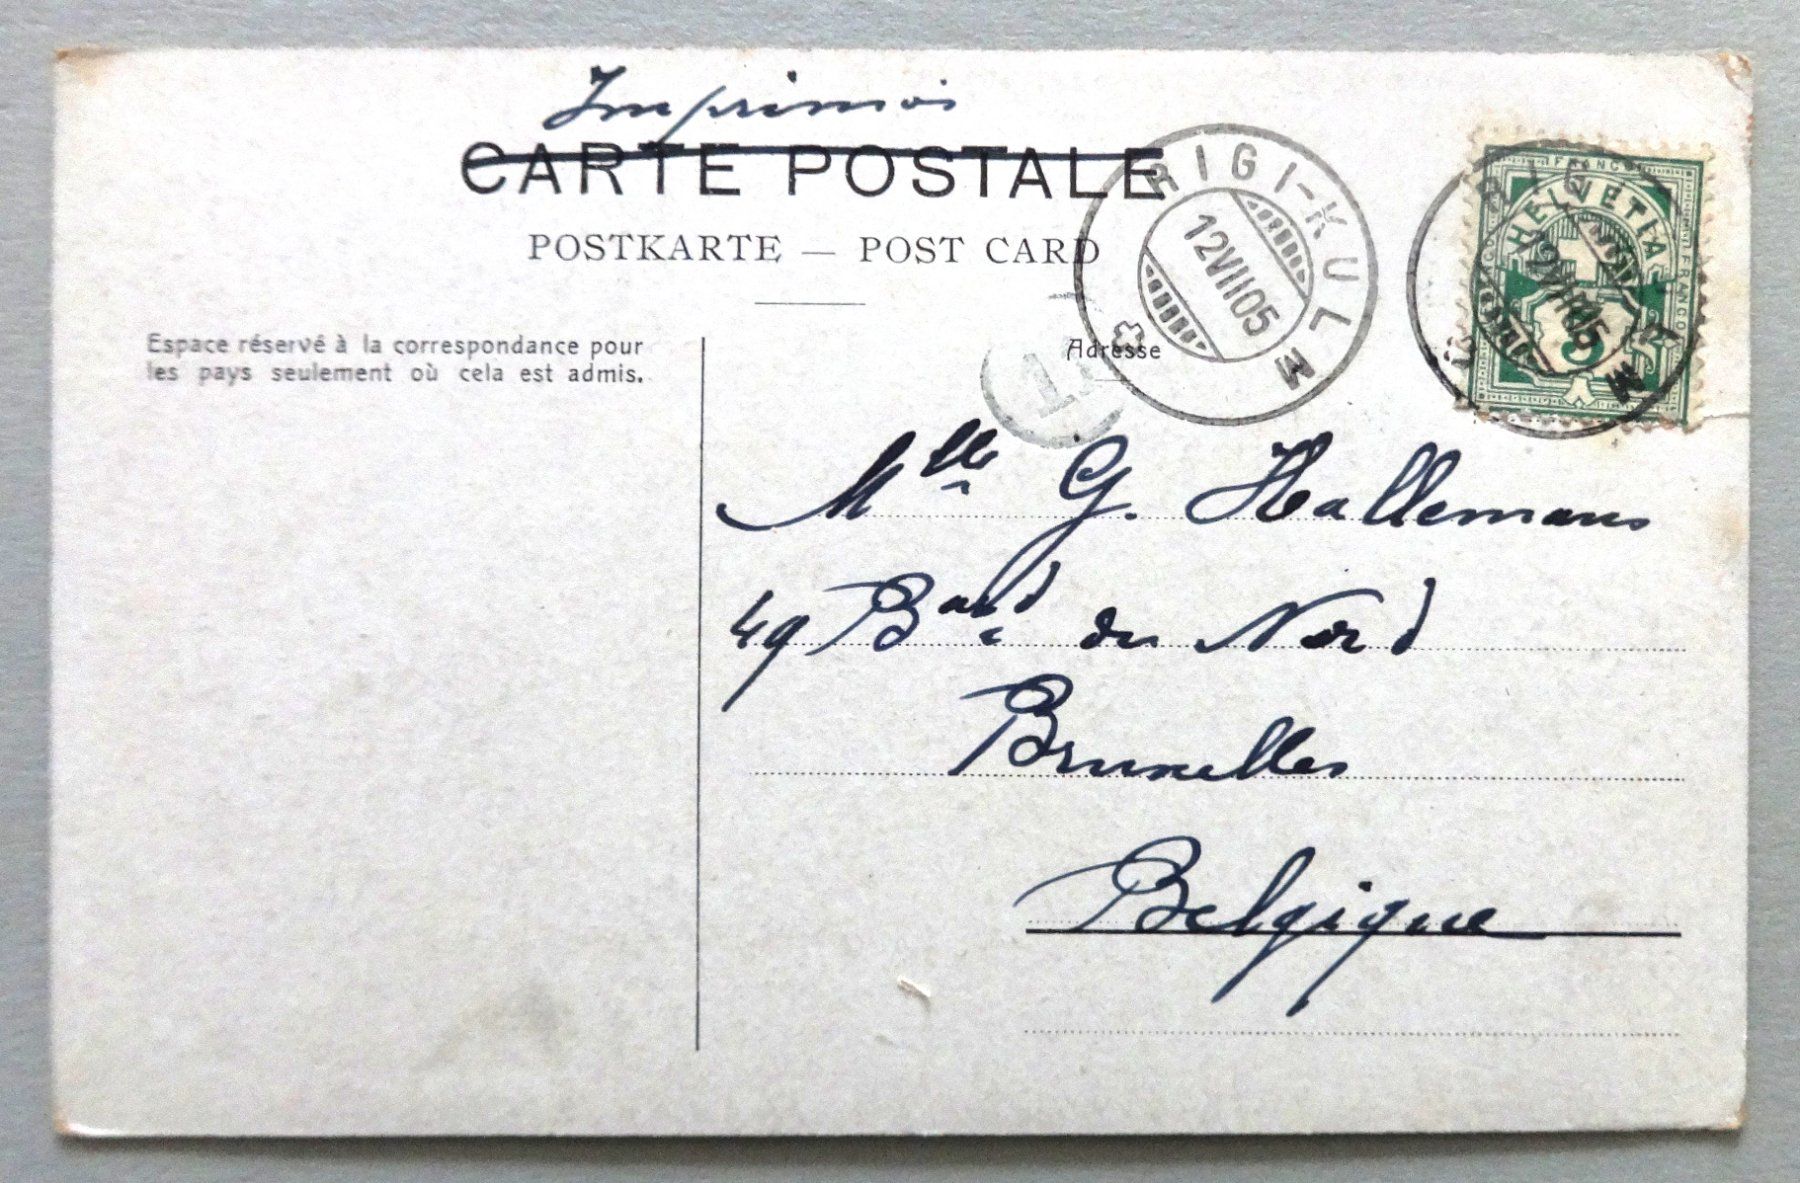 Imprimés
CARTE POSTALE
POSTKARTE — POST CARD
RIGI-KULM
12 VII 05
FRANCO
HELVETIA
FRANCO
5
Espace réservé à la correspondance pour
les pays seulement où cela est admis.
Adresse
T
Mlle G. Hallemans
49 Bard du Nord
Bruxelles
Belgique